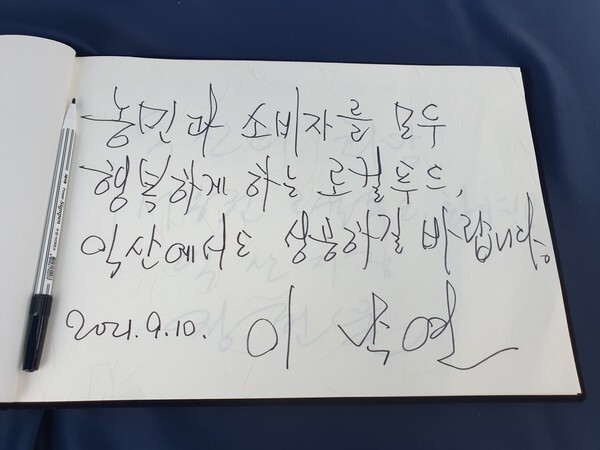 농민과 소비자를 모두
행복하게 하는 로컬푸드,
익산에서도 성공하길 바랍니다.
2021.9.10. 이낙연